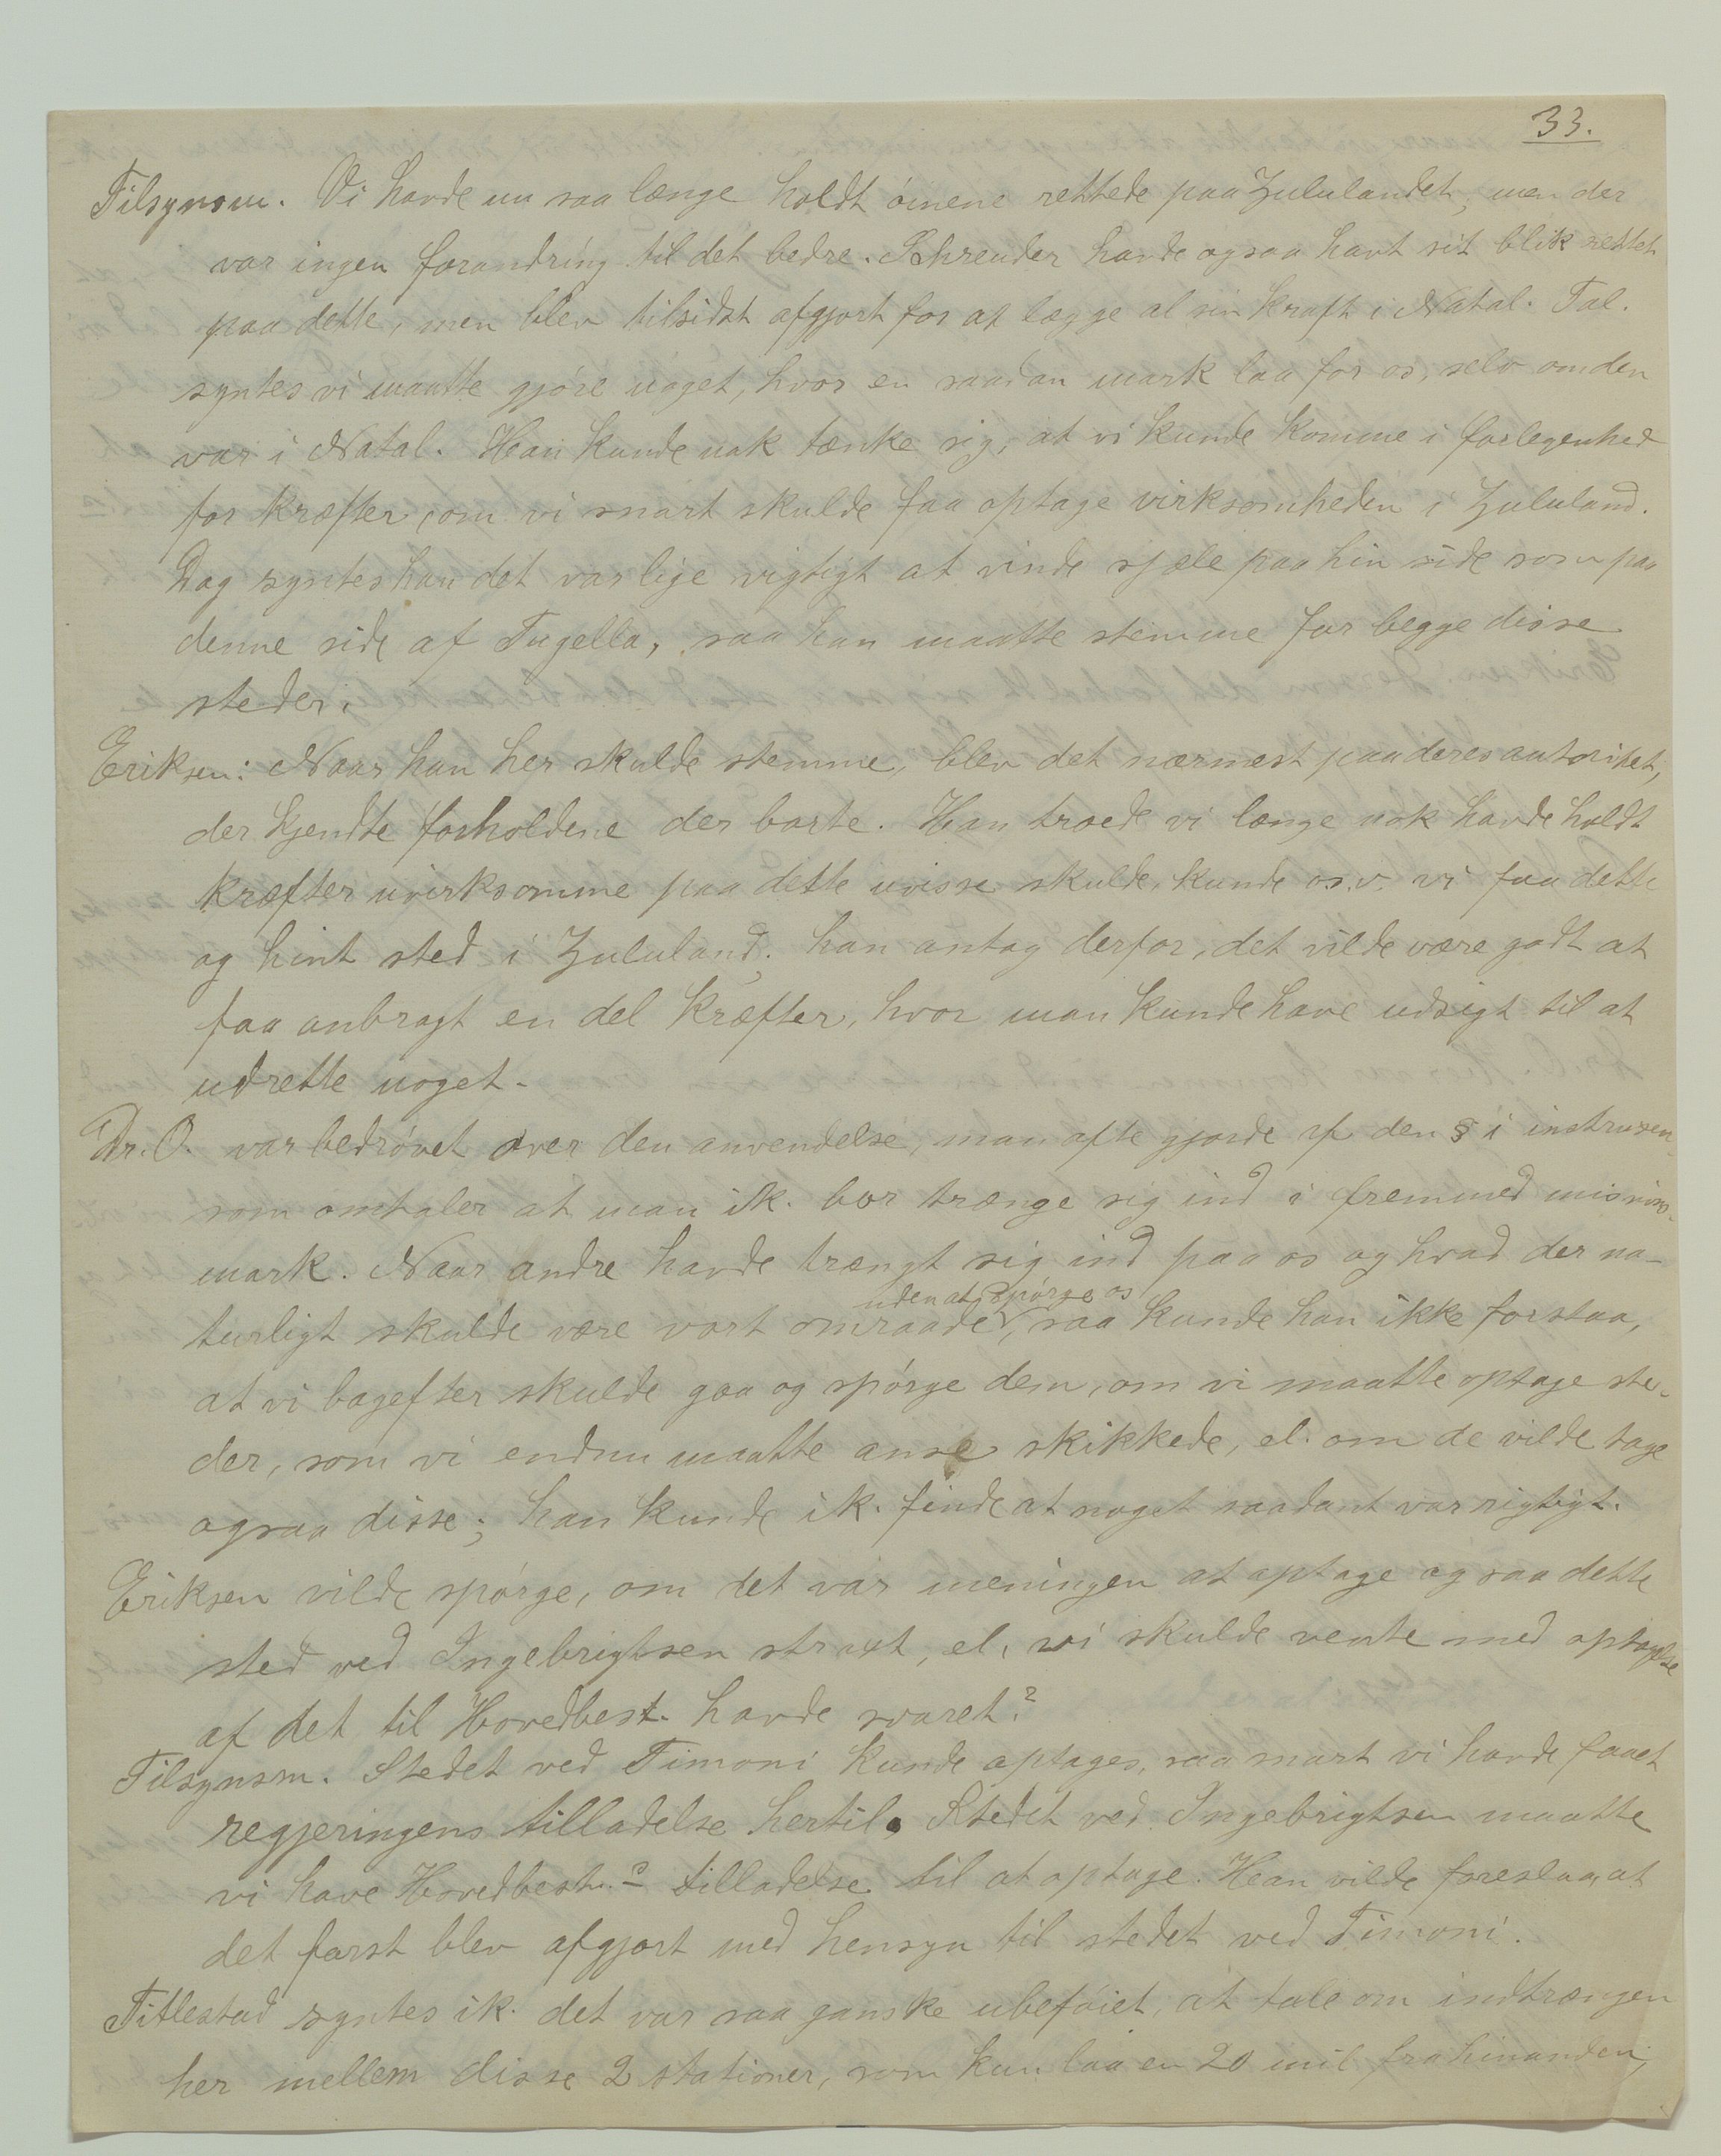 33.
Tilsynsm. Vi havde nu saa længe holdt óinene rettede paa Zululandet, men der
var ingen forandring til det bedre. Schreuder havde ogsaa havt sit blik rettet
paa dette, men blev tilsidst afgjort for at lægge al sin kraft i Natal. Tal.
syntes vi maatte gjóre noget, hvor en saadan mark laa for os, selv om den
var i Natal. Han kunde nok tænke sig, at vi kunde komme i forlegenhed
for kræfter, om vi snart skulde faa optage virksomheden i Zululand.
Dog syntes han det var lige vigtigt at vinde sjæle paa hin side som paa
denne side af Tugella, saa han maatte stemme for begge disse
steder.
Eriksen: Naar han her skulde stemme, blev det nærmest paa deres autoritet,
der kjendte forholdene der borte. Han troede vi længe nok havde holdt
kræfter uvirksomme paa dette uvisse skulde, kunde o.s.v. vi faa dette
og hint sted i Zululand. han antog derfor, det vilde være godt at
faa anbragt en del kræfter, hvor man kunde have udsigt til at
udrette noget.
Dr. O. var bedróvet over den anvendelse, man ofte gjorde af den § i instruxen,
som omtaler at man ik. bor trænge sig ind i fremmed missions-
mark. Naar andre havde trængt sig ind paa os og hvad der na-
uden at spórge os
turligt skulde være vort omraade, saa kunde han ikke forstaa,
at vi bagefter skulde gaa og spórge dem, om vi maatte optage ste-
der, som vi endnu maatte anse skikkede, el. om de vilde tage
ogsaa disse; han kunde ik. finde at noget saadant var rigtigt.
Eriksen vilde spórge, om det var meningen at optage ogsaa dette
sted ved Ingebrigtsen straxt, el. vi skulde vente med optagelse
af det til Hovedbest. havde svaret?
Tilsynsm. Stedet ved Timoni kunde optages, saa snart vi havde faaet
regjeringens tilladelse hertil. Stedet ved Ingebrigtsen maatte
vi have Hovedbest.s tilladelse til at optage. Han vilde foreslaa, at
det forst blev afgjort med hensyn til stedet ved Timoni.
Titlestad syntes ik. det var saa ganske ubefóiet, at tale om indtrængen
her mellem disse 2 stationer, som kun laa en 20 mil fra hinanden;